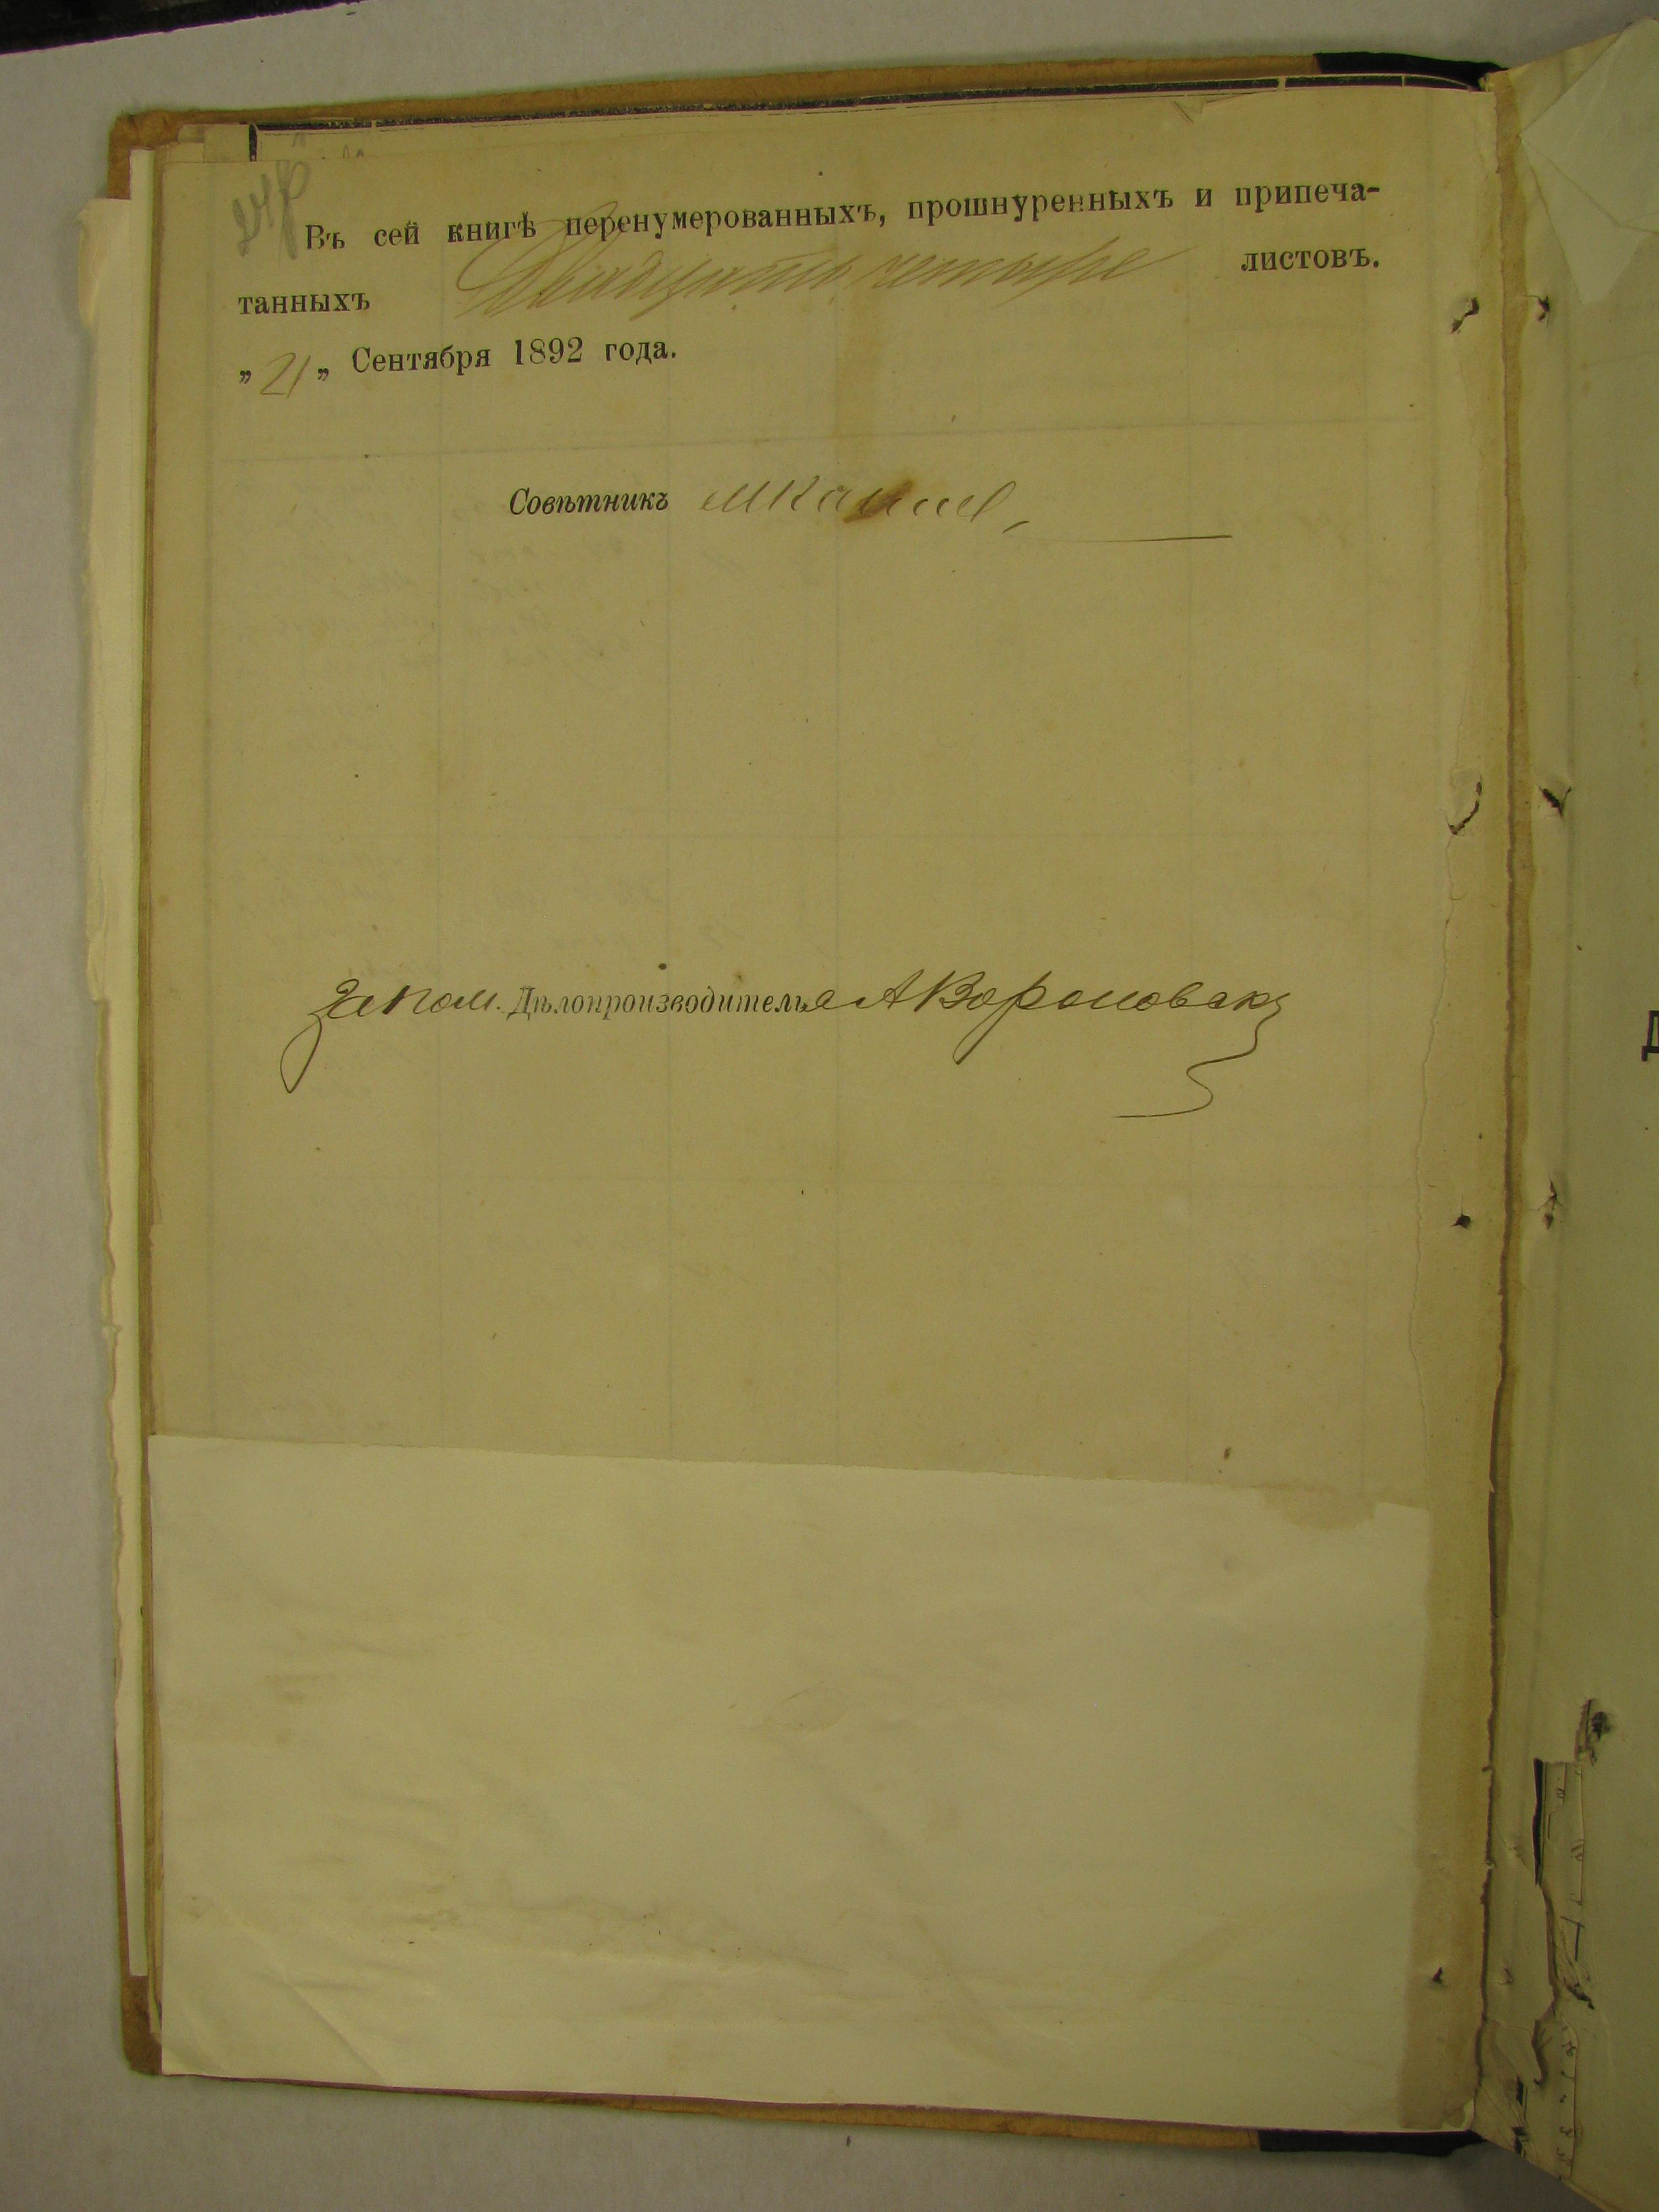 Въ сей книгѣ перенумерованныхъ, прошнуренныхъ и припеча-
танныхъ Двадцать четыре листовъ.
„ 21 „ Сентября 1892 года.
Совѣтникъ
За пом. Дѣлопроизводителя АВороновск